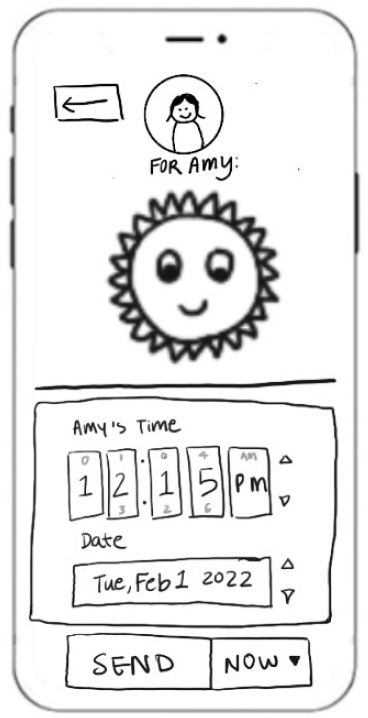 FOR Amy:
Amy's Time
0 1 0 4 AM
12:15 PM
3 2 6
Date
Tue, Feb 1 2022
SEND NOW ▼